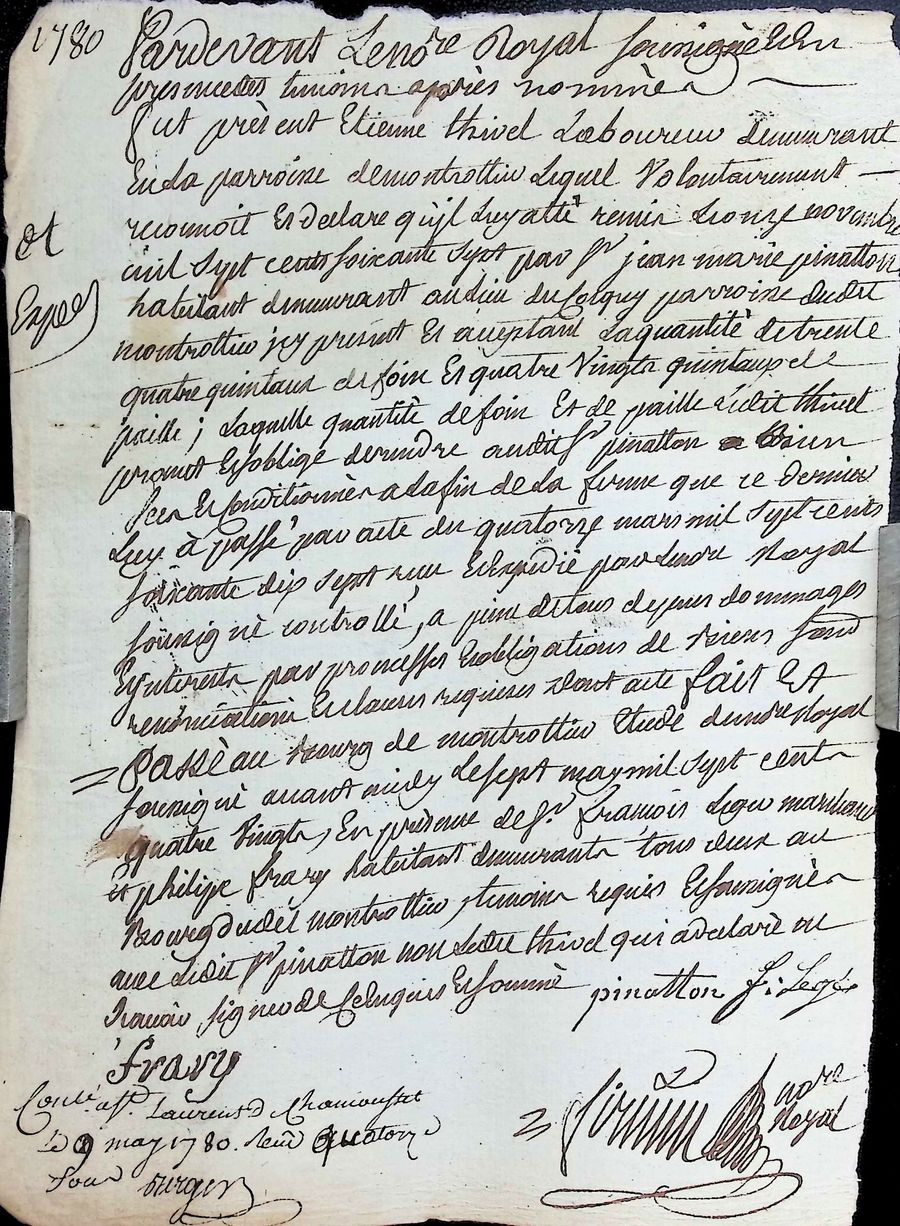 1780
Pardevant Le nore Royal soussignè Et En
presence des temoins après nommès
fut prèsent Etienne thivel Laboureur demeurant
En La parroisse de montrottier Lequel Volontairement
reconnoit Et declare qu'jl Luy a ettè remis Le onze novembre
mil sept cents soixante sept par sr jean marie pinatton
habitant demeurant au Lieu du parroisse dudit
montrottier jcy present Et aceptant La quantité de trente
quatre quintaux de foin Et quatre Vingts quintaux de
paille; Laquelle quantitè de foin Et de paille Ledit thivel
promet Et soblige de rendre audit sr pinatton Bien
secs Et Conditionnès a La fin de La ferme que ce dernier
Luy à passé par acte du quatorze mars mil sept cents
soixante dix sept reçu Et Expedié par Le nore Royal
soussignè controllé, a peine de tous depens dommages
Et jnterests par promesses Et obligations de Biens
renonciations Et clauses requises dont acte fait Et
Passè au Bourg de montrottier Etude du nore Royal
soussigné avant midy Le sept may mil sept cents
quatre Vingts, En prèsence de sr francois marchand
et philipe frary habitant demeurants tous deux au
Bourg dudit montrottier, temoins requis Et soussignès
avec Ledit sr pinatton non Ledit thivel qui a declarè ne
Scavoir signer de ce Enquis Et sommé
pinatton
frary
nore
Royal
Conlé a st Laurens d Chamousset
Le 9 may 1780. Reçu quatorze
sous
et
Exped